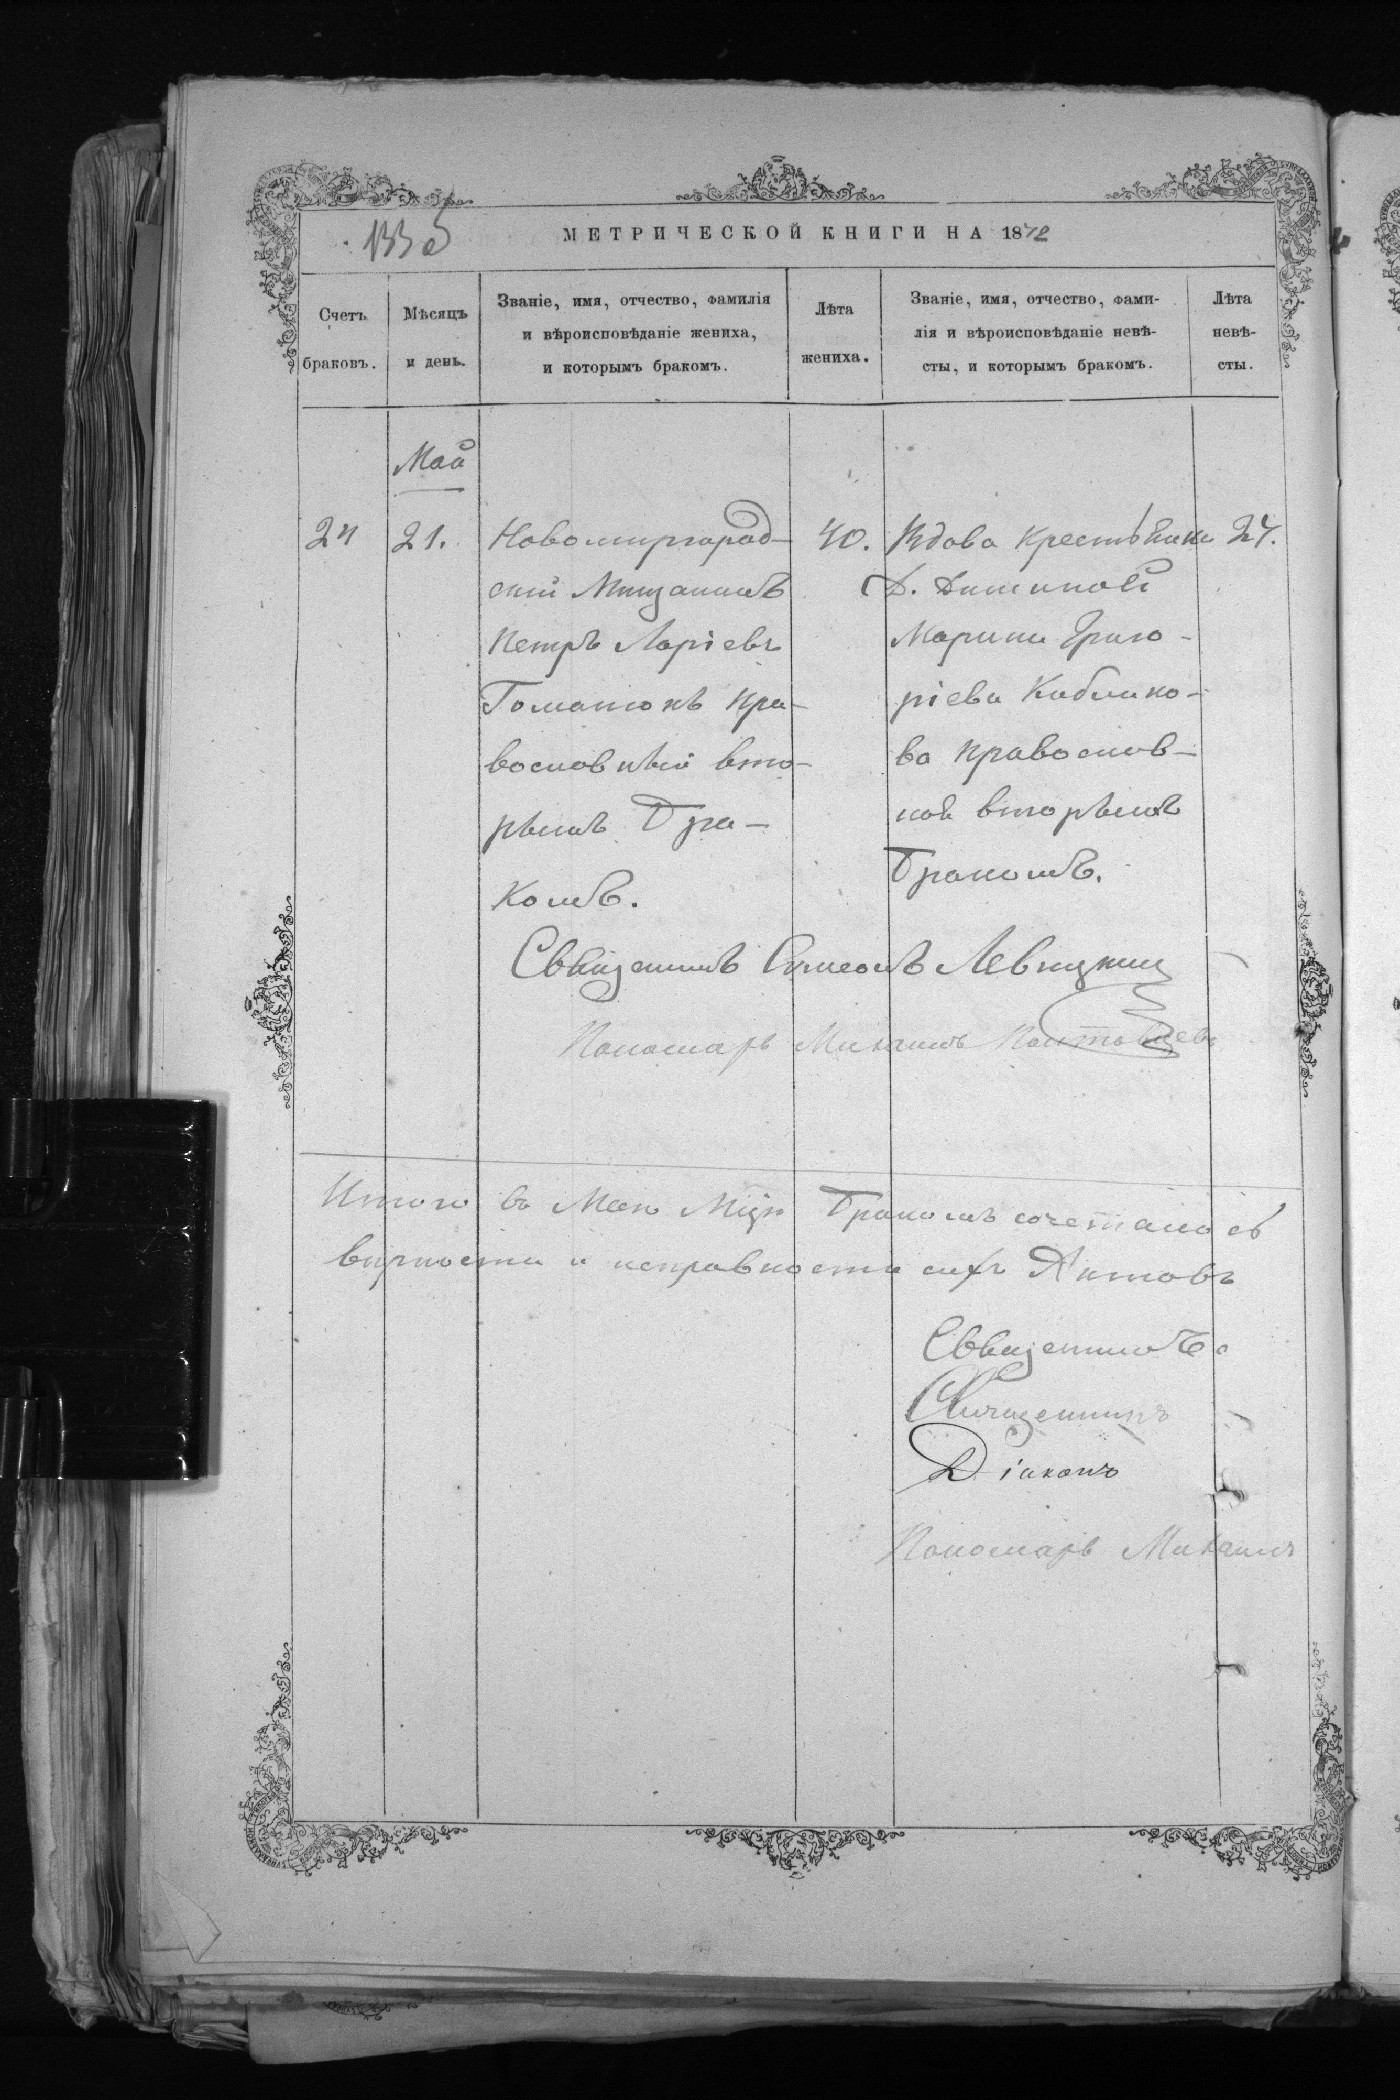 133 об
МЕТРИЧЕСКОЙ КНИГИ НА 1872
Счетъ браковъ.
Мѣсяцъ и день.
Званіе, имя, отчество, фамилія
и вѣроисповѣданіе жениха,
и которымъ бракомъ.
Лѣта жениха.
Званіе, имя, отчество, фами-
лія и вѣроисповѣданіе невѣ-
сты, и которымъ бракомъ.
Лѣта невѣ-
сты.
Май
21.
Новомиргород-
скій Мищанинъ
Петръ
пра-
вославный вто-
рымъ бра-
комъ.
40.
Вдова Крестьянка
Д.
Марина Григо-
ріева
ва православ-
ная вторымъ
бракомъ.
24.
Священникъ Симеонъ Левицкий
Пономарь Михаилъ
Итого въ Маи Мцѣ бракомъ сочеталось
вирности и исправности сихъ Актовъ
Священникъ
Священникъ
Діаконъ
Пономарь Михаилъ